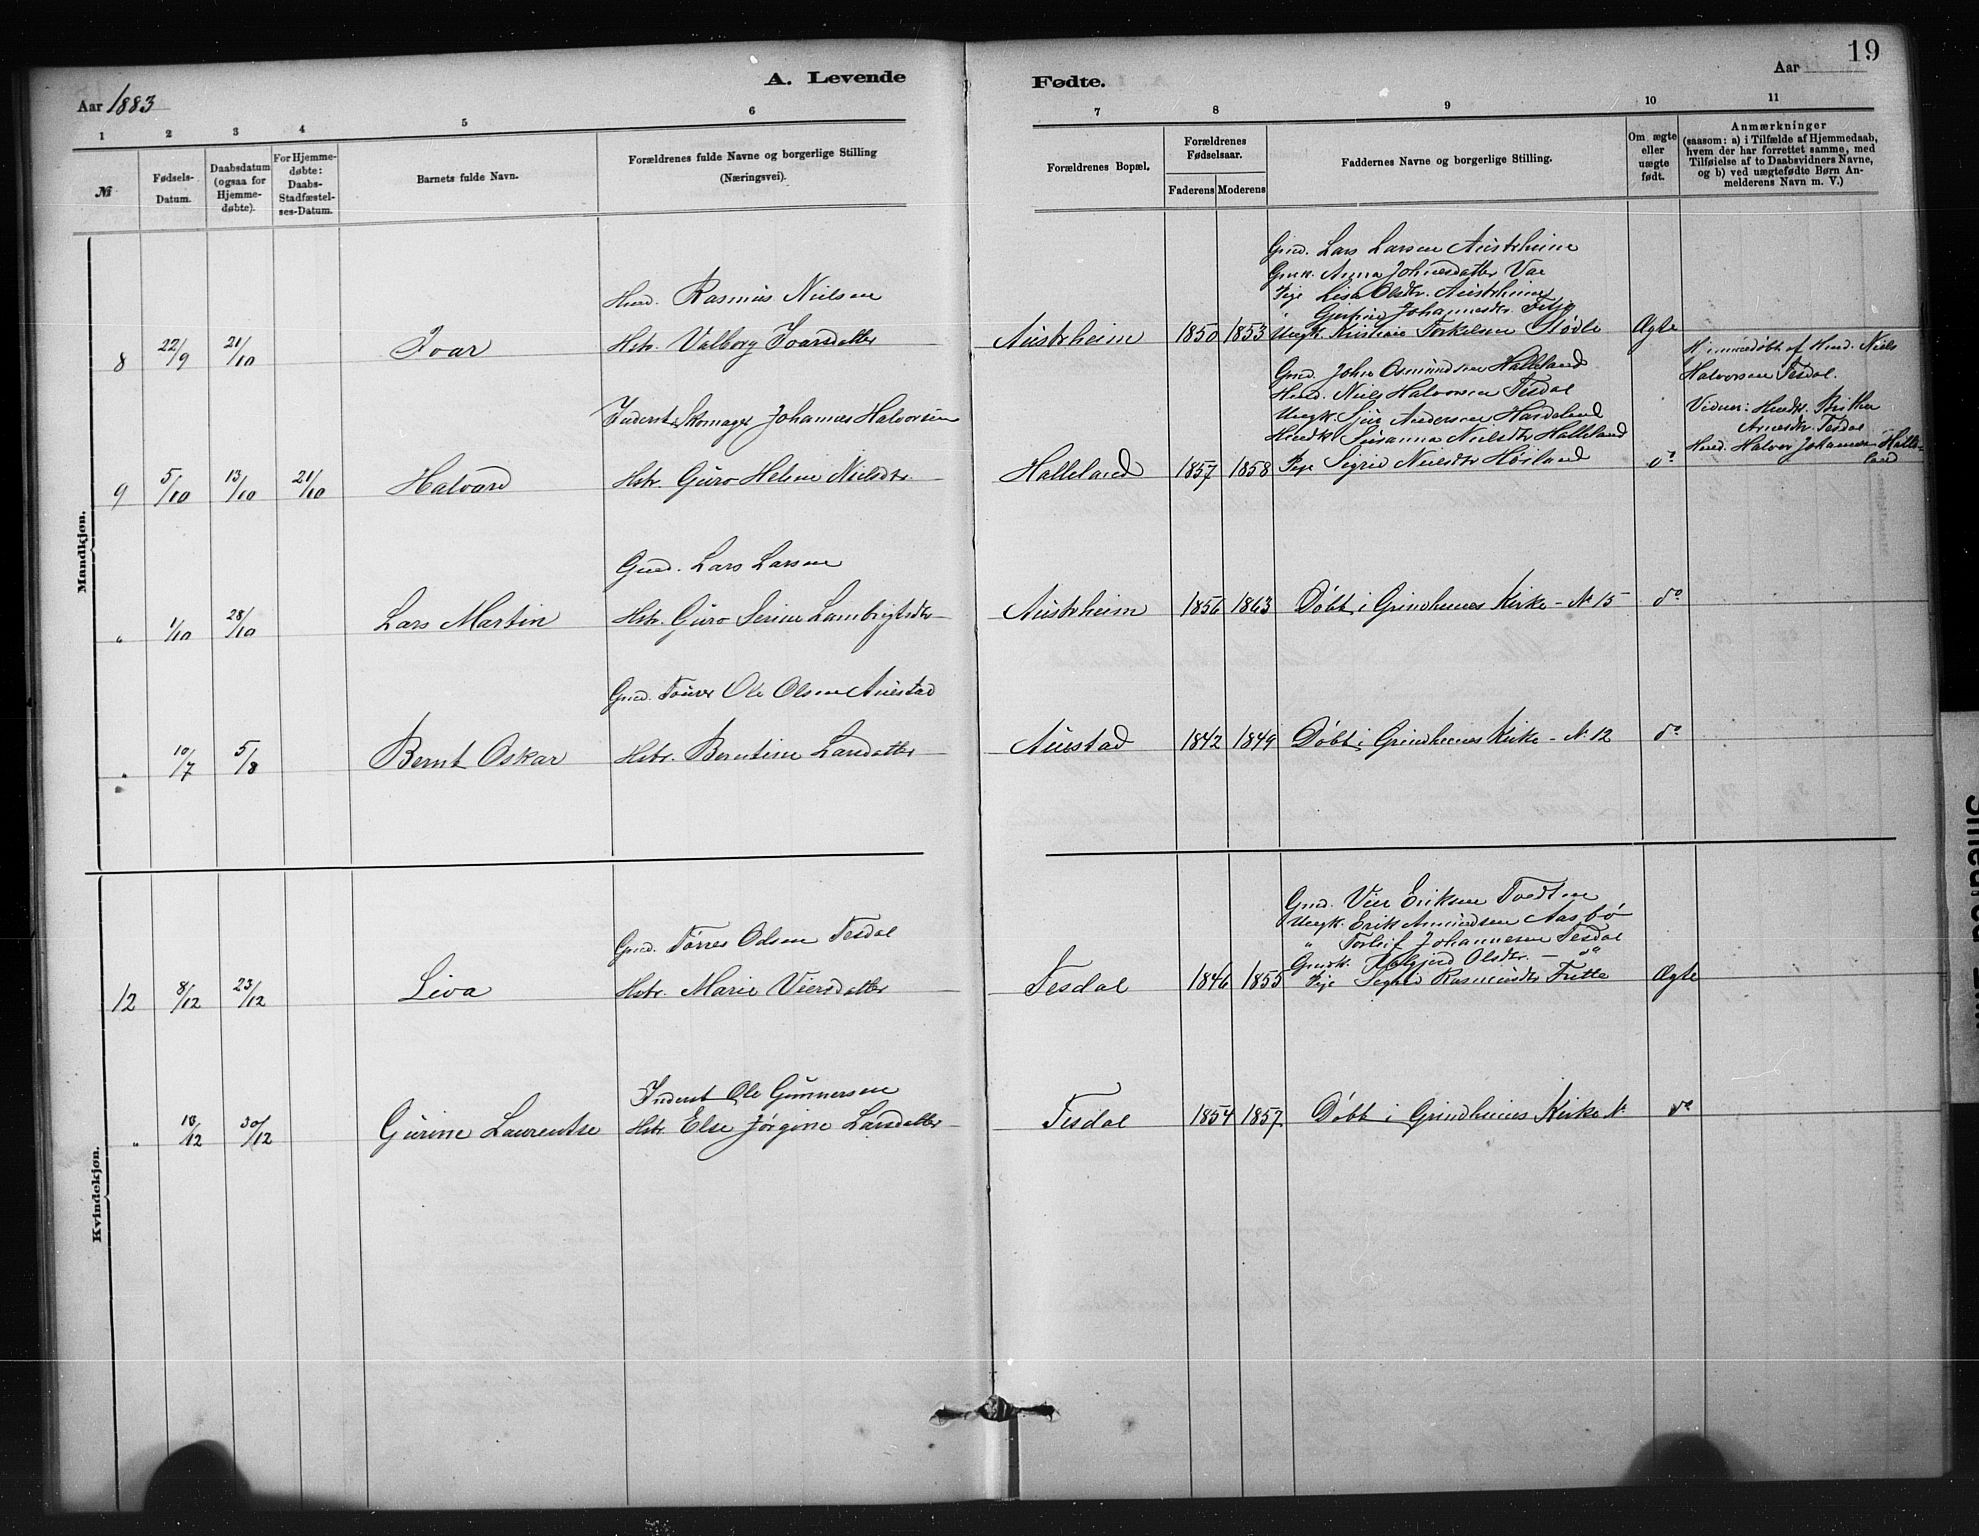 19
A. Levende Fødte.
Aar 1883
Aar
1 2 3 4 5 6 7 8 9 10 11
№
Fødsels-Datum.
Daabsdatum (ogsaa for Hjemme-døbte).
For Hjemme-døbte: Daabs-Stadfæstel-ses-Datum.
Barnets fulde Navn.
Forældrenes fulde Navne og borgerlige Stilling (Næringsvei).
Forældrenes Bopæl.
Forældrenes Fødselsaar.
Faderens Moderens
Faddernes Navne og borgerlige Stilling.
Om ægte eller uægte født.
Anmærkninger
(saasom: a) i Tilfælde af Hjemmedaab,
hvem der har forrettet samme, med
Tilføielse af to Daabsvidners Navne,
og b) ved uægtefødte Børn An-
melderens Navn m. V.)
Mandkjøn.
Gmd. Lars Larsen Austrheim
Gmk. Anna Johnesdatter Vae
Pige Lisa Olsdtr. Austrheim
" Johannesdtr.
Husd. Rasmus Nielsen
8 22/9 21/10 Ivar Hstr. Valborg Ivarsdatter Austrheim 1850 1853 Ungk. Torkelsen Stødle Ægte
Hjemmedøbt af Husd. Niels
Halvorsen Tesdal.
Gmd. John Osmundsen Halleland
Husd. Niels Halvorsen Tesdal
Vidner: Husk. Brithe
Inderst Skomager Johannes Halvorsen
Ungk. Sjur Andersen
Tesdal
Husk. Susanna Nielsdtr Halleland
Husd. Halvor Johannesen Halle-
land
9 5/10 13/10 21/10 Halvard Hstr. Guro Helene Nielsdtr. Halleland 1857 1858 Pige Sigrid Nielsdtr do
Gmd. Lars Larsen
" 1/10 28/10 Lars Martin Hstr. Guro Serine Lambrigtsdtr Austrheim 1856 1863 Døbt i Grindheims Kirke - № 15 do
Gmd. Ole Olsen Austad
" 10/7 5/8 Bernt Oskar Hstr. Berntine Larsdatter Austad 1842 1849 Døbt i Grindheims Kirke - № 12 do
Kvindekjøn.
Gmd. Vier Eriksen
Ungk. Erik Amundsen Aasbø
Gmd. Tørres Odsen Tesdal
" Torleif Johannesen Tesdal
Gmdk. Olsdtr. - do
12 8/12 23/12 Liva Hstr. Marie Viersdatter Tesdal 1846 1855 Pige Rasmusdtr Ægte
Inderst Ole Gunnersen
" 10/12 30/12 Gurine Laurentse Hstr. Else Jørgine Larsdatter Tesdal 1854 1857 Døbt i Grindheims Kirke № do